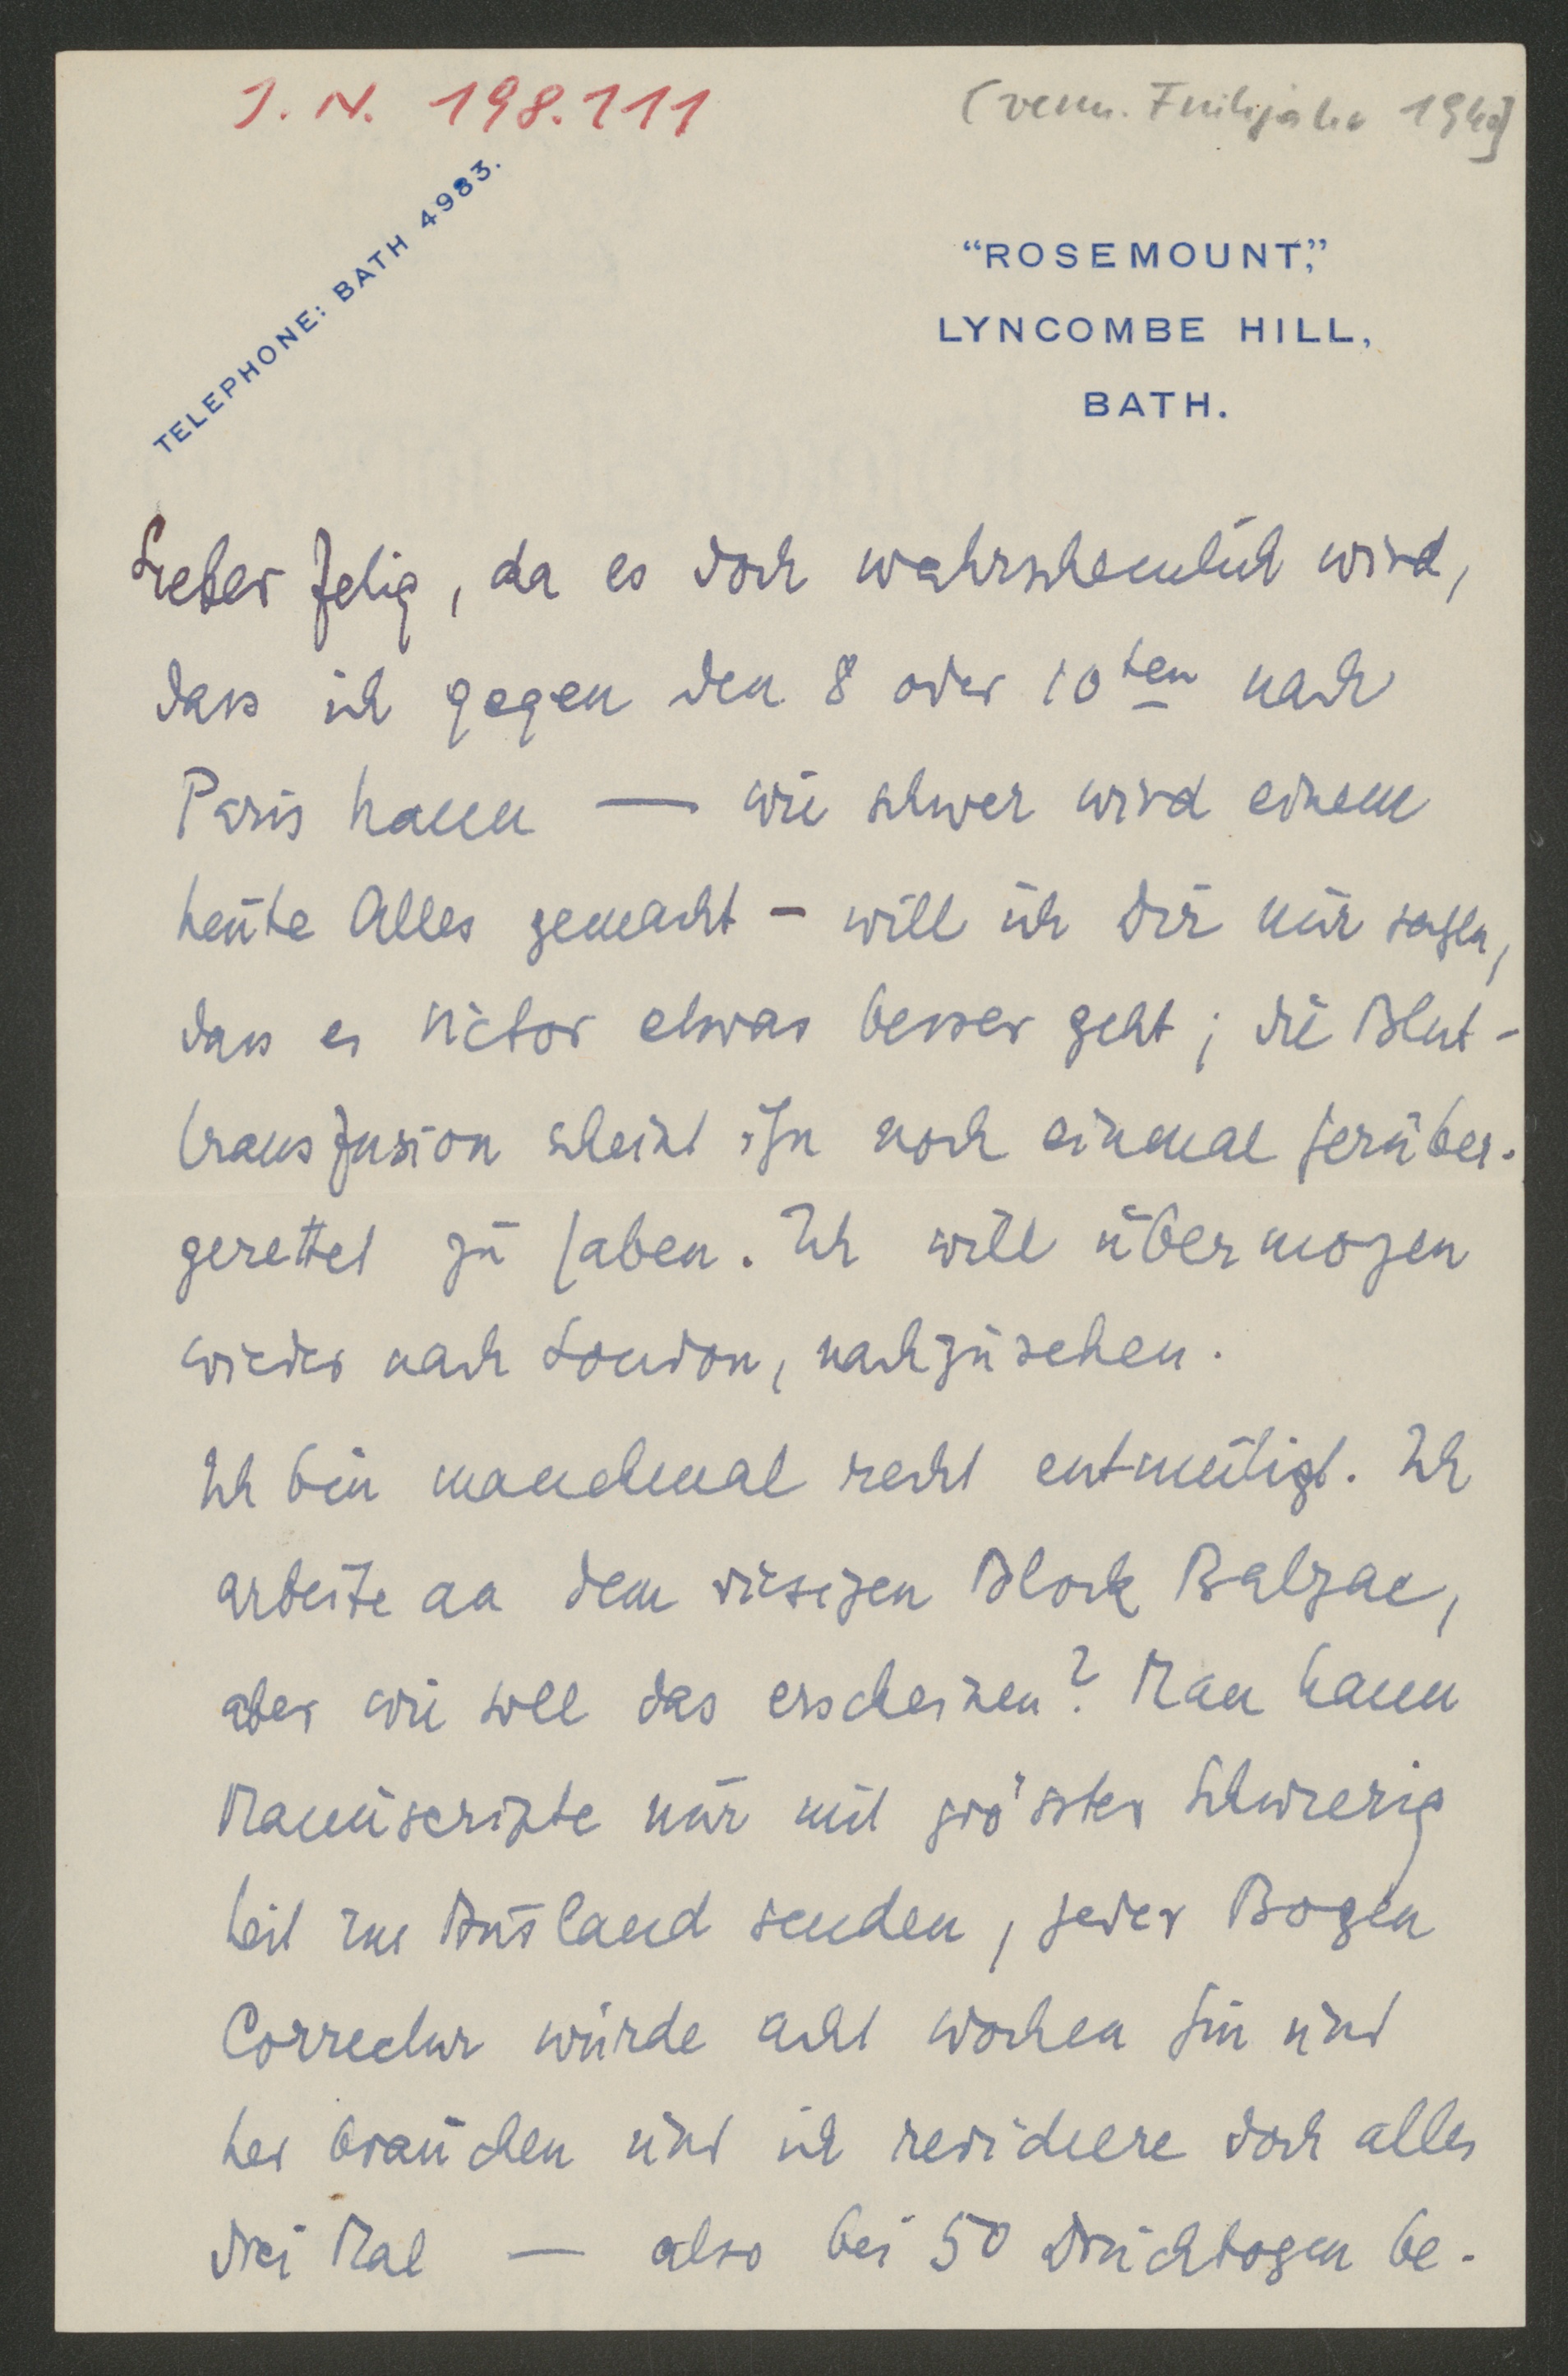 J. N. 198.111
(verm. Frühjahr 1940]
TELEPHONE: BATH 4983.
“ROSEMOUNT,”
LYNCOMBE HILL,
BATH.
Lieber Felix, da es doch wahrscheinlich wird,
dass ich gegen den 8 oder 10ten nach
Paris kann — wie schwer wird einem
heute Alles gemacht – will ich Dir nur sagen,
dass es Victor etwas besser geht; die Blut-
transfusion scheint ihn noch einmal herüber-
gerettet zu haben. Ich will übermorgen
wieder nach London, nachzusehen.
Ich bin manchmal recht entmutigt. Ich
arbeite an dem riesigen Block Balzac,
aber wie soll das erscheinen? Man kann
Manuscripte nur mit grösster Schwierig
keit ins Ausland senden, jeder Bogen
Correctur würde acht Wochen hin und
her brauchen und ich revidiere doch alles
drei Mal — also bei 50 Druckbogen be-